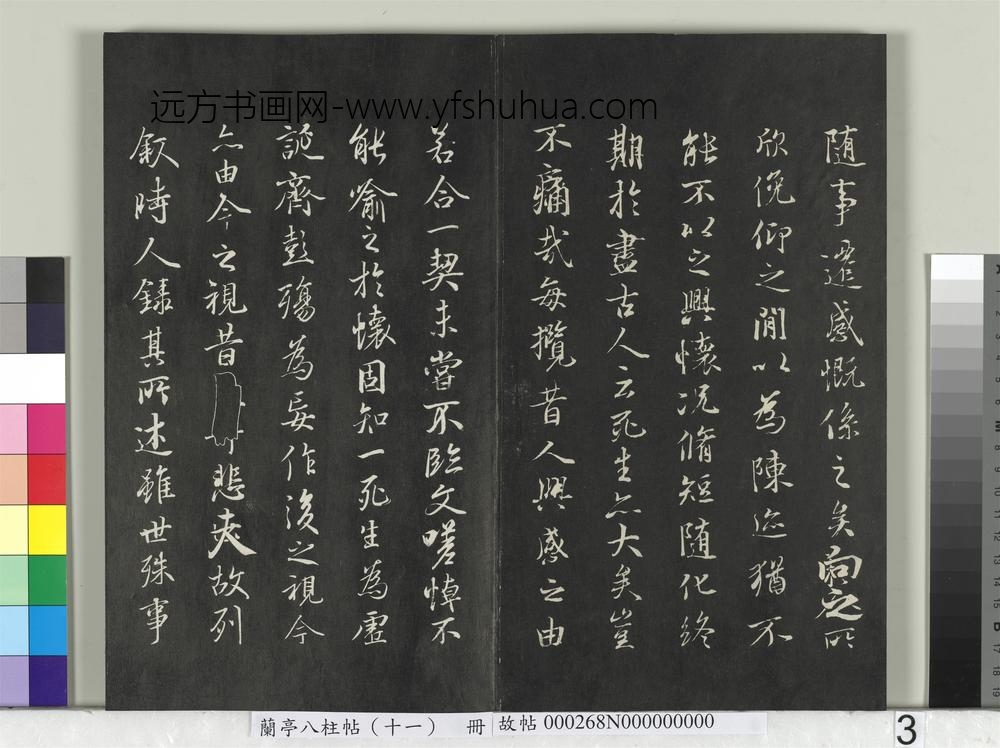 远方书画网-www.yfshuhua.com
随事遷感慨係之矣向之所
欣俛仰之閒以為陳迹猶不
能不以之興懷況脩短随化終
期於盡古人云死生亦大矣豈
不痛哉每攬昔人興感之由
若合一契未嘗不臨文嗟悼不
能喻之於懷固知一死生為虛
誕齊彭殤為妄作後之視今
亦由今之視昔悲夫故列
叙時人錄其所述雖世殊事
蘭亭八柱帖（十一） 冊
故帖 000268N000000000
3